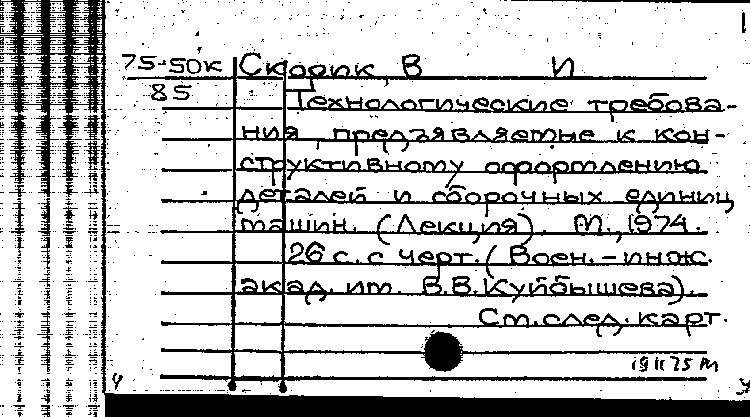 75-50к Скорик, В И
85
Технологические требова-
ния, предъявляемые к кон-
структивному оформлению
деталей и сборочных единиц
машин. (Лекция). М., 1974.
26 с. с черт. (Воен.-инж.
акад. им. В.В.Куйбышева).
См. след. карт.